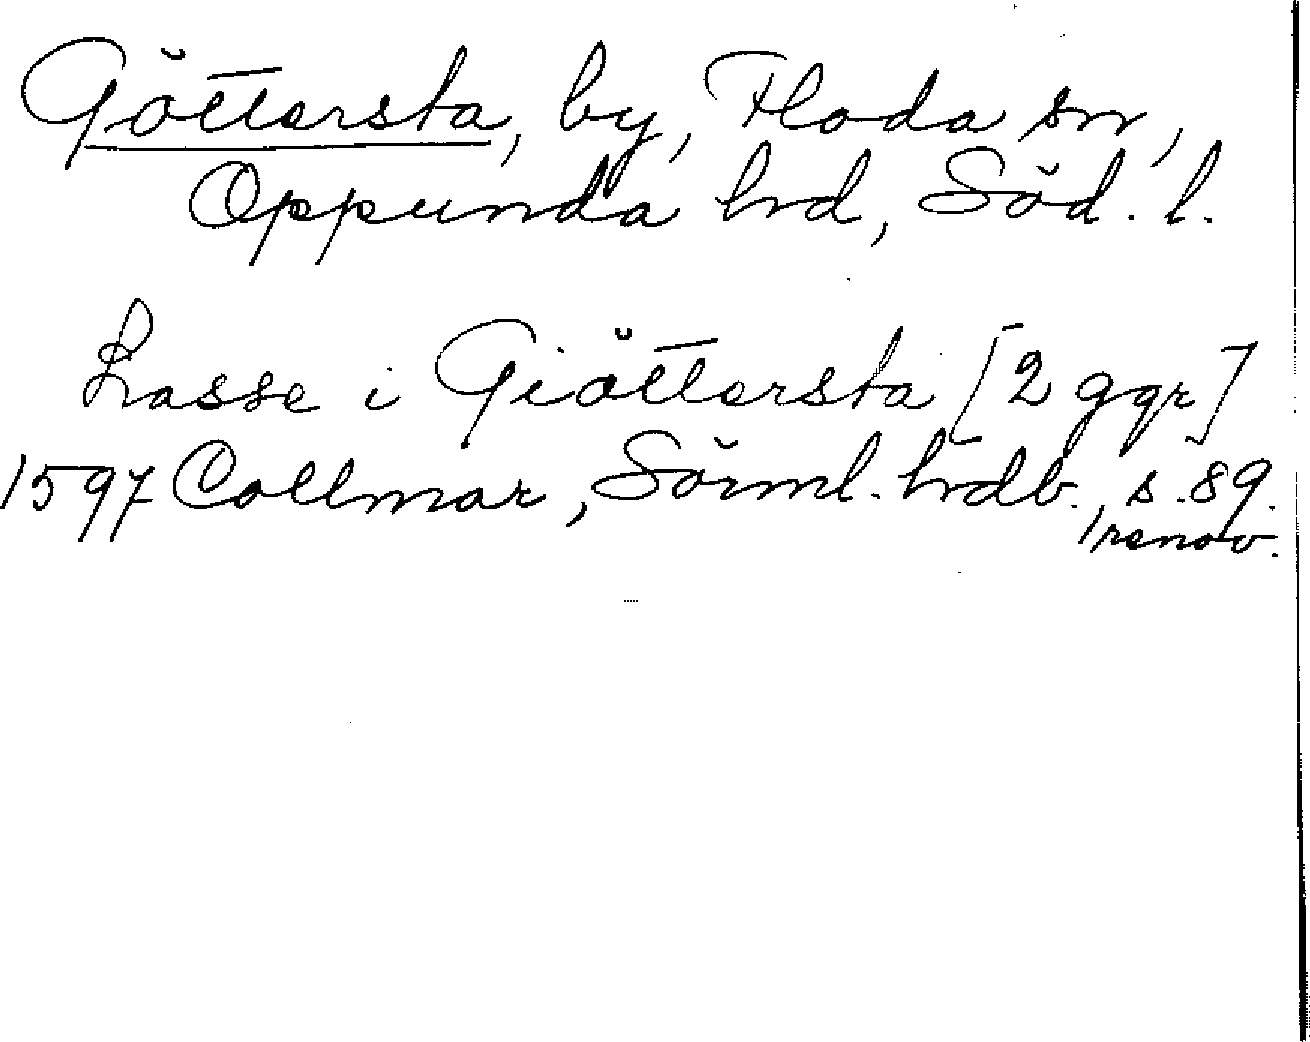 Göttersta, by, Floda sn,
Oppunda hrd, Söd. l.
Lasse i Giöttersta [2 ggr]
1597 Collmar, Sörml. hrdb., s. 89.
renov.